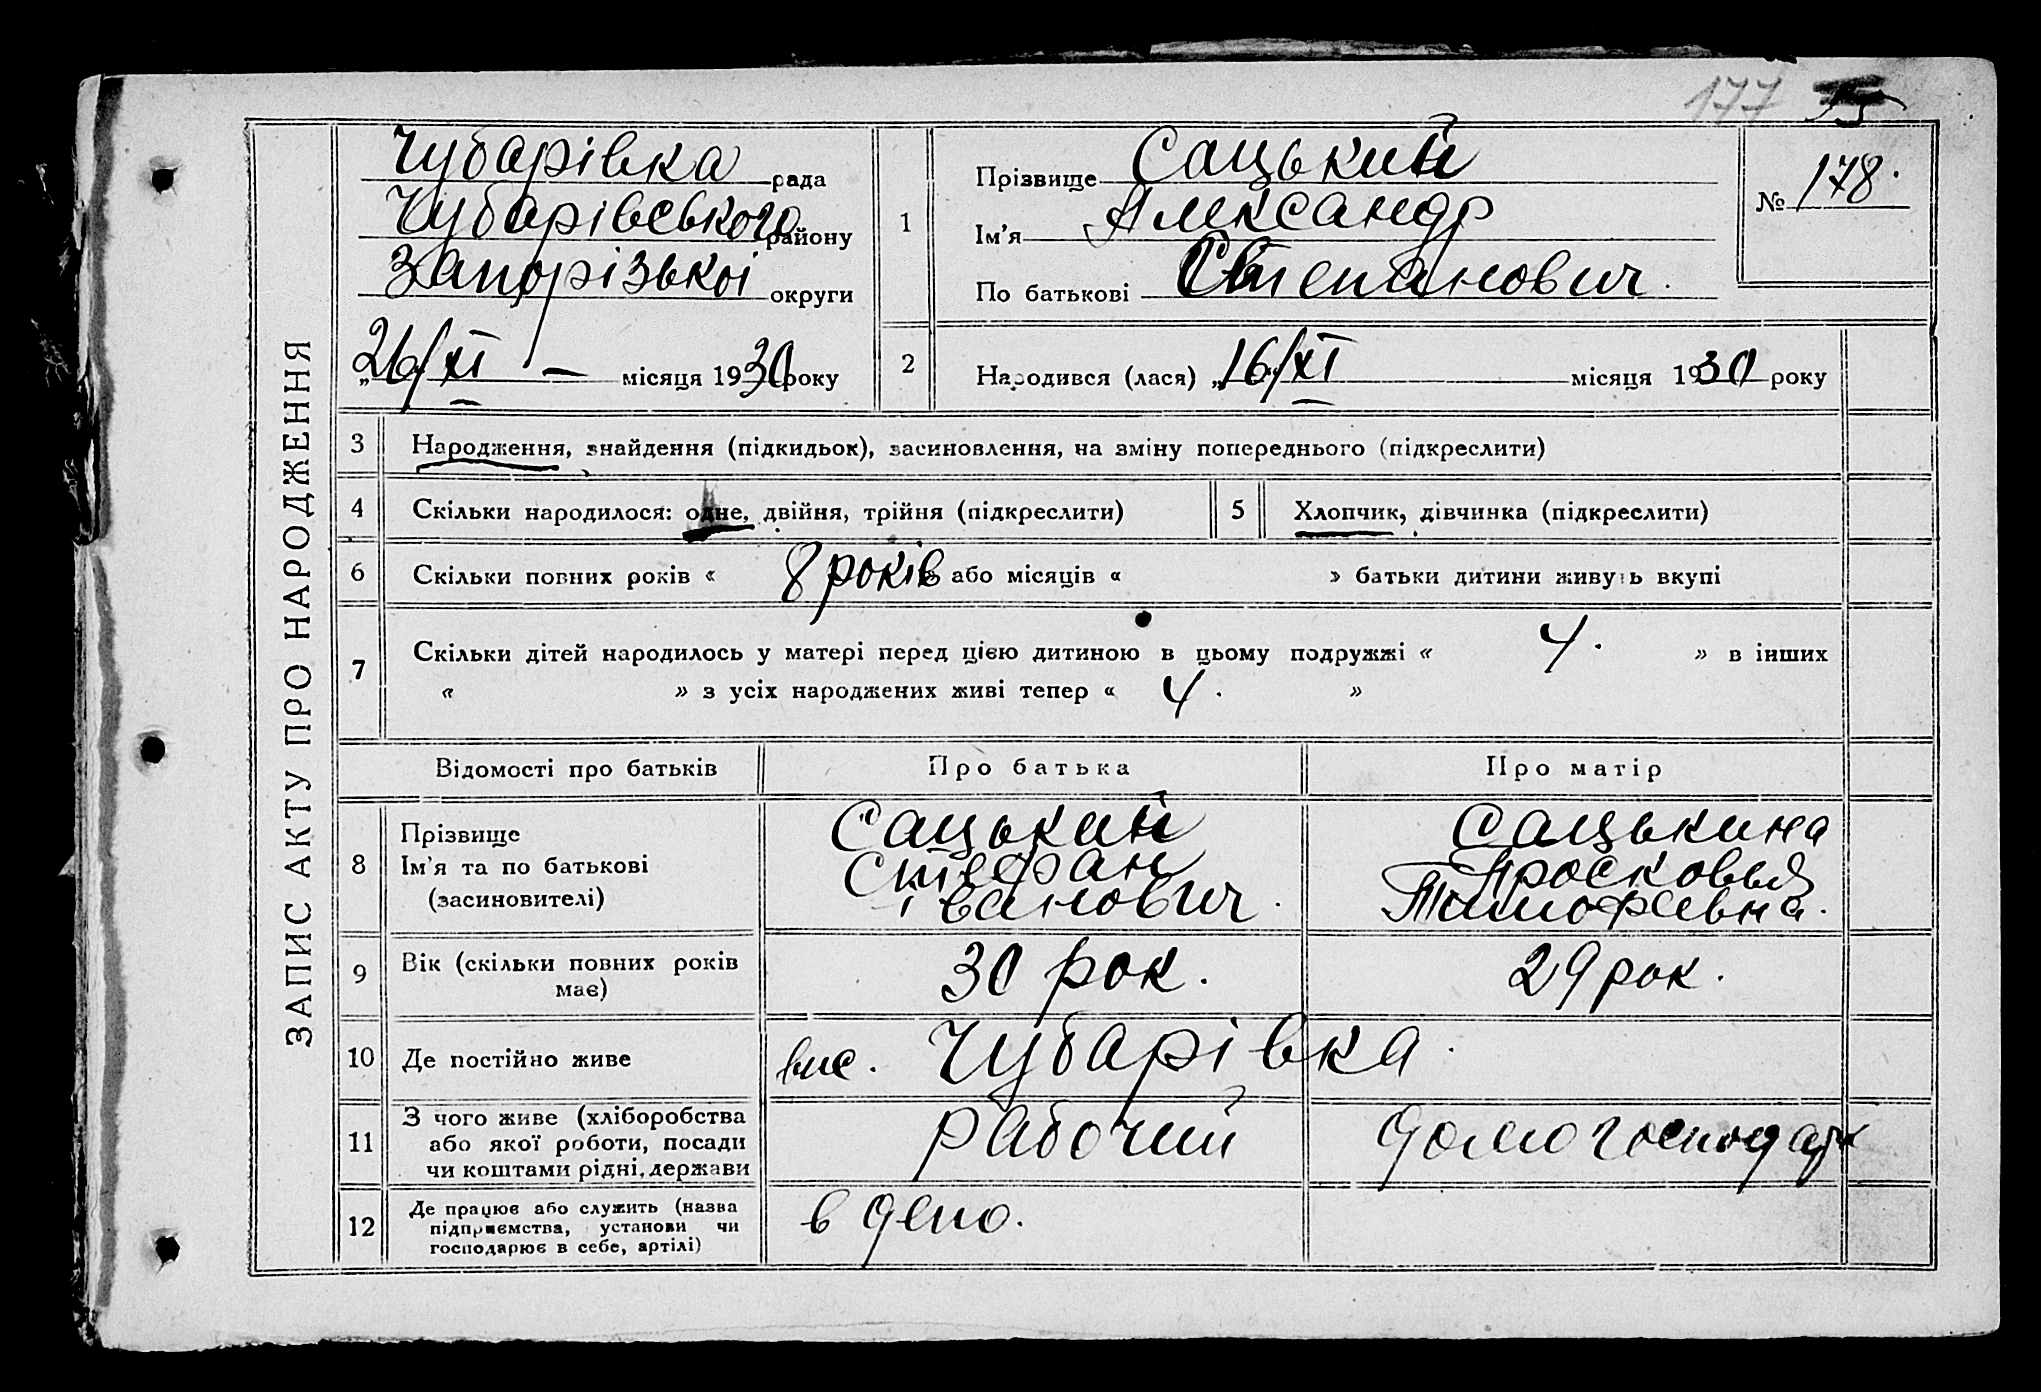 177
ЗАПИС АКТУ ПРО НАРОДЖЕННЯ
Чубарівка рада
Чубарівського району
Запорізької округи
„26/XI — місяця 1930 року
1
Прізвище Сацький
Ім'я Александр
По батькові Степанович.
№ 178.
2
Народився (лася) „16/XI місяця 1930 року
3 Народження, знайдення (підкидьок), засиновлення, на зміну попереднього (підкреслити)
4 Скільки народилося: одне, двійня, трійня (підкреслити)
5 Хлопчик, дівчинка (підкреслити)
6 Скільки повних років « 8 років або місяців « » батьки дитини живуть вкупі
7 Скільки дітей народилось у матері перед цією дитиною в цьому подружжі « 4. » в інших
« » з усіх народжених живі тепер « 4. »
Відомості про батьків Про батька Про матір
8
Прізвище
Ім'я та по батькові
(засиновителі)
Сацький
Стефан
Іванович.
Сацькина
Просковья
Тимофеевна.
9 Вік (скільки повних років
має)
30 рок.
29 рок.
10 Де постійно живе Чубарівка.
11 З чого живе (хліборобства
або якої роботи, посади
чи коштами рідні, держави
рабочий
домогосподарк
12 Де працює або служить (назва
підприємства, установи чи
господарює в себе, артілі)
в депо.